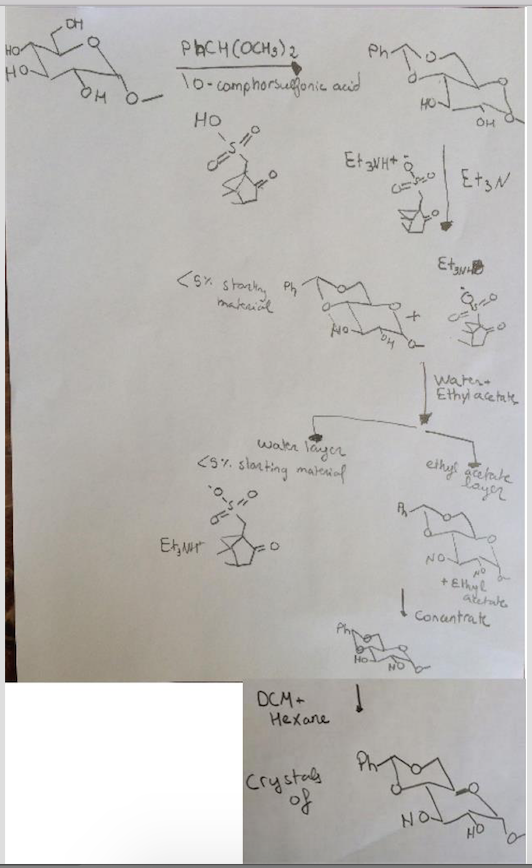 OH
HO
O
HO
OH
O
PhCH(OCH3)2
10-camphorsulfonic acid
Ph
O
O
O
HO
OH
O
HO
S
O
O
O
Et3NH+
-O
S
O
O
O
Et3N
<5% starting
material
Ph
O
O
O
HO
OH
O-
+
Et3NH
-O
S
O
O
O
Water+
Ethyl acetate
water layer
<5% starting material
ethyl acetate
layer
-O
S
O
O
O
Et3NH+
Ph
O
O
O
NO
HO
O-
+ Ethyl
acetate
Concentrate
Ph
O
O
O
HO
HO
O-
DCM+
Hexane
Crystals
of
Ph
O
O
O
HO
HO
O-